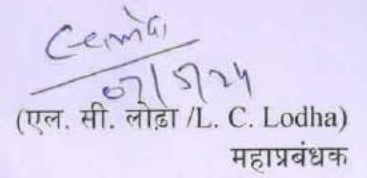 07/5/24
(एल. सी. लोढ़ा /L. C. Lodha)
महाप्रबंधक